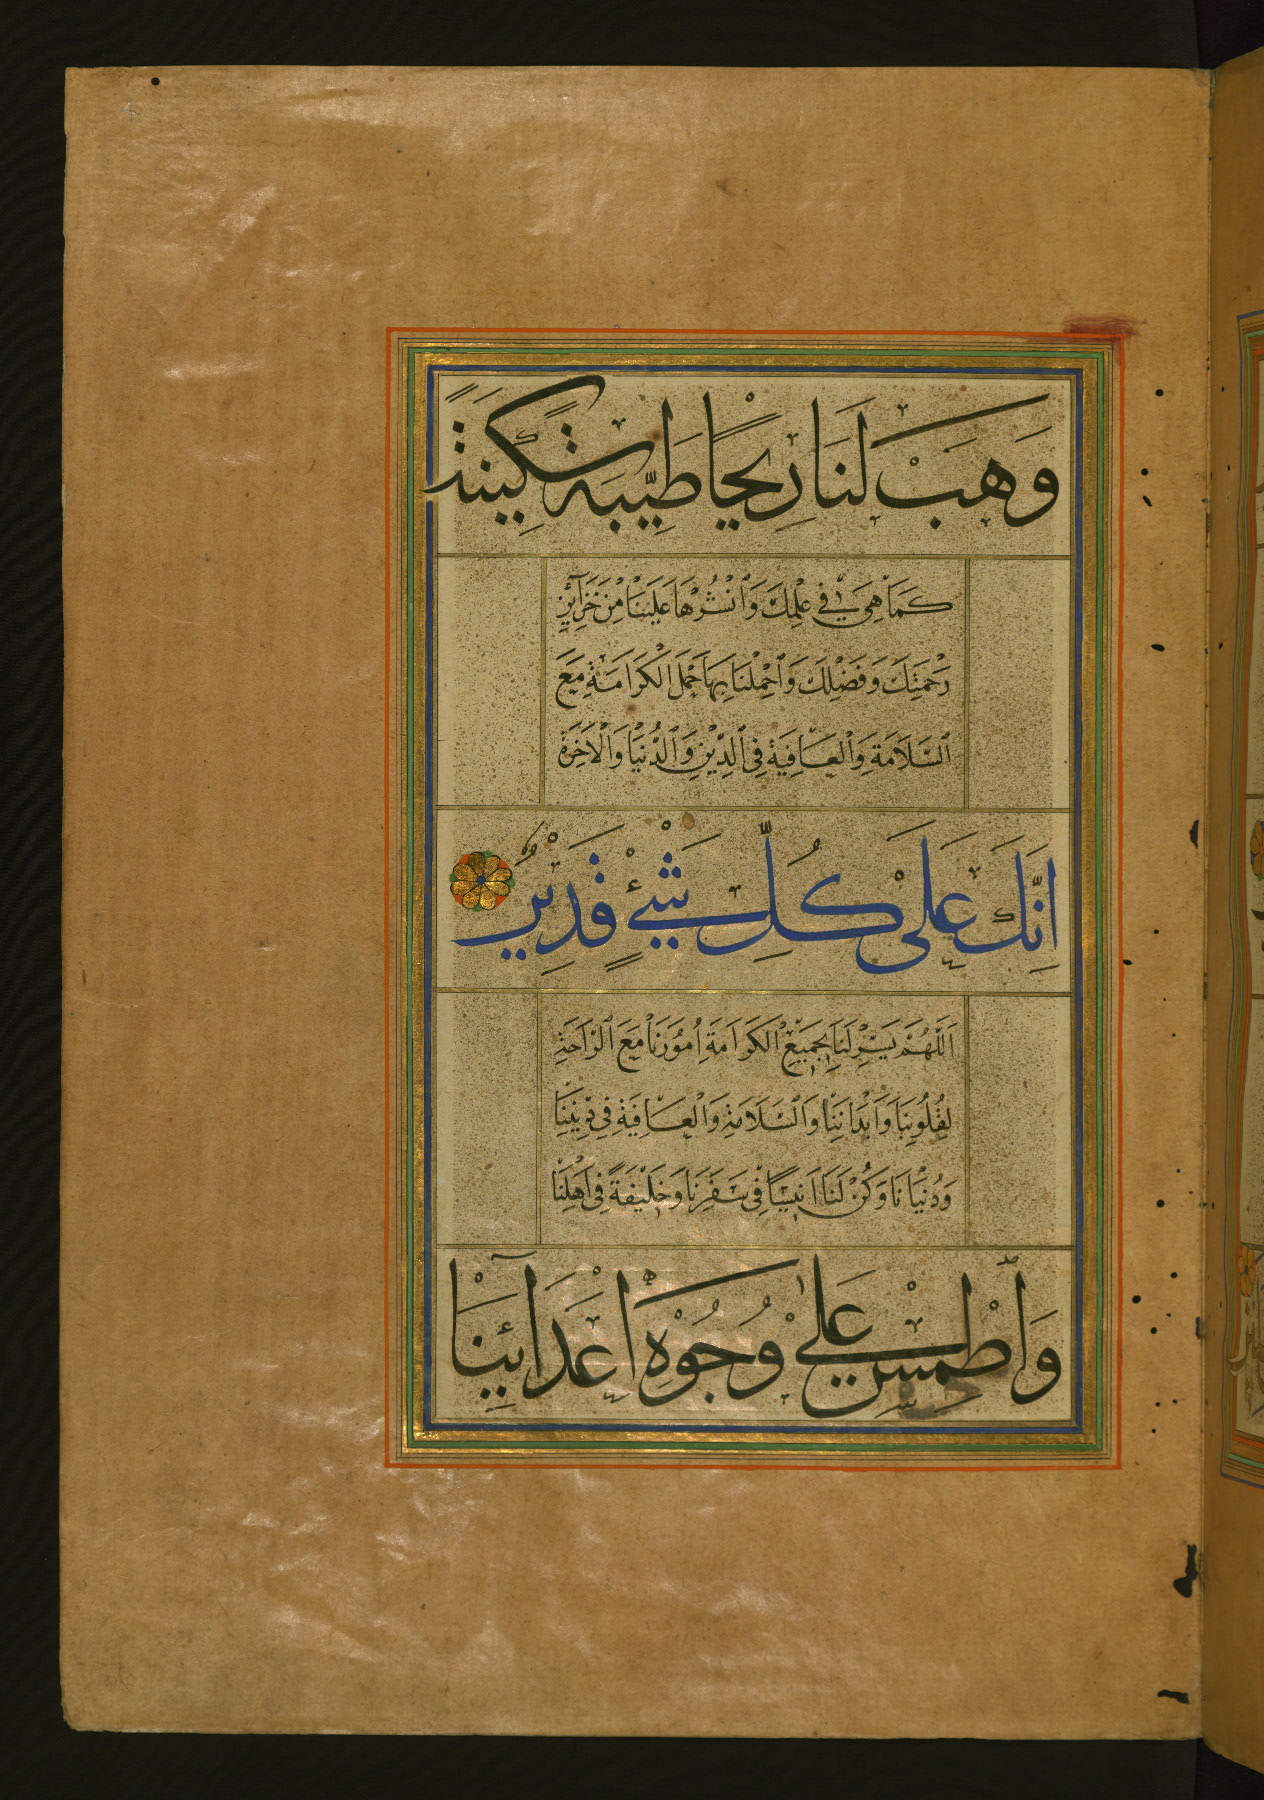 وَهَبْ لَنَا رِيْحًا طَيِّبَةً سَكِيْنَةً
كَمَا هِيَ فِيْ عِلْمِكَ وَانْشُرْهَا عَلَيْنَا مِنْ خَزَآئِنِ
رَحْمَتِكَ وَفَضْلِكَ وَاحْمِلْنَا بِهَا حَمْلَ الْكَرَامَةِ مَعَ
السَّلَامَةِ وَالْعَافِيَةِ فِي الدِّيْنِ وَالدُّنْيَا وَالْاٰخِرَةِ
اِنَّكَ عَلٰى كُلِّ شَيْءٍ قَدِيْرٌ
اَللّٰهُمَّ يَسِّرْ لَنَا بِجَمِيْعِ الْكَرَامَةِ اُمُوْرَنَا مَعَ الرَّاحَةِ
لِقُلُوْبِنَا وَاَبْدَانِنَا وَالسَّلَامَةِ وَالْعَافِيَةِ فِيْ دِيْنِنَا
وَدُنْيَانَا وَكُنْ لَنَا اَنِيْسًا فِيْ سَفَرِنَا وَخَلِيْفَةً فِيْ اَهْلِنَا
وَاطْمِسْ عَلٰى وُجُوْهِ اَعْدَآئِنَا